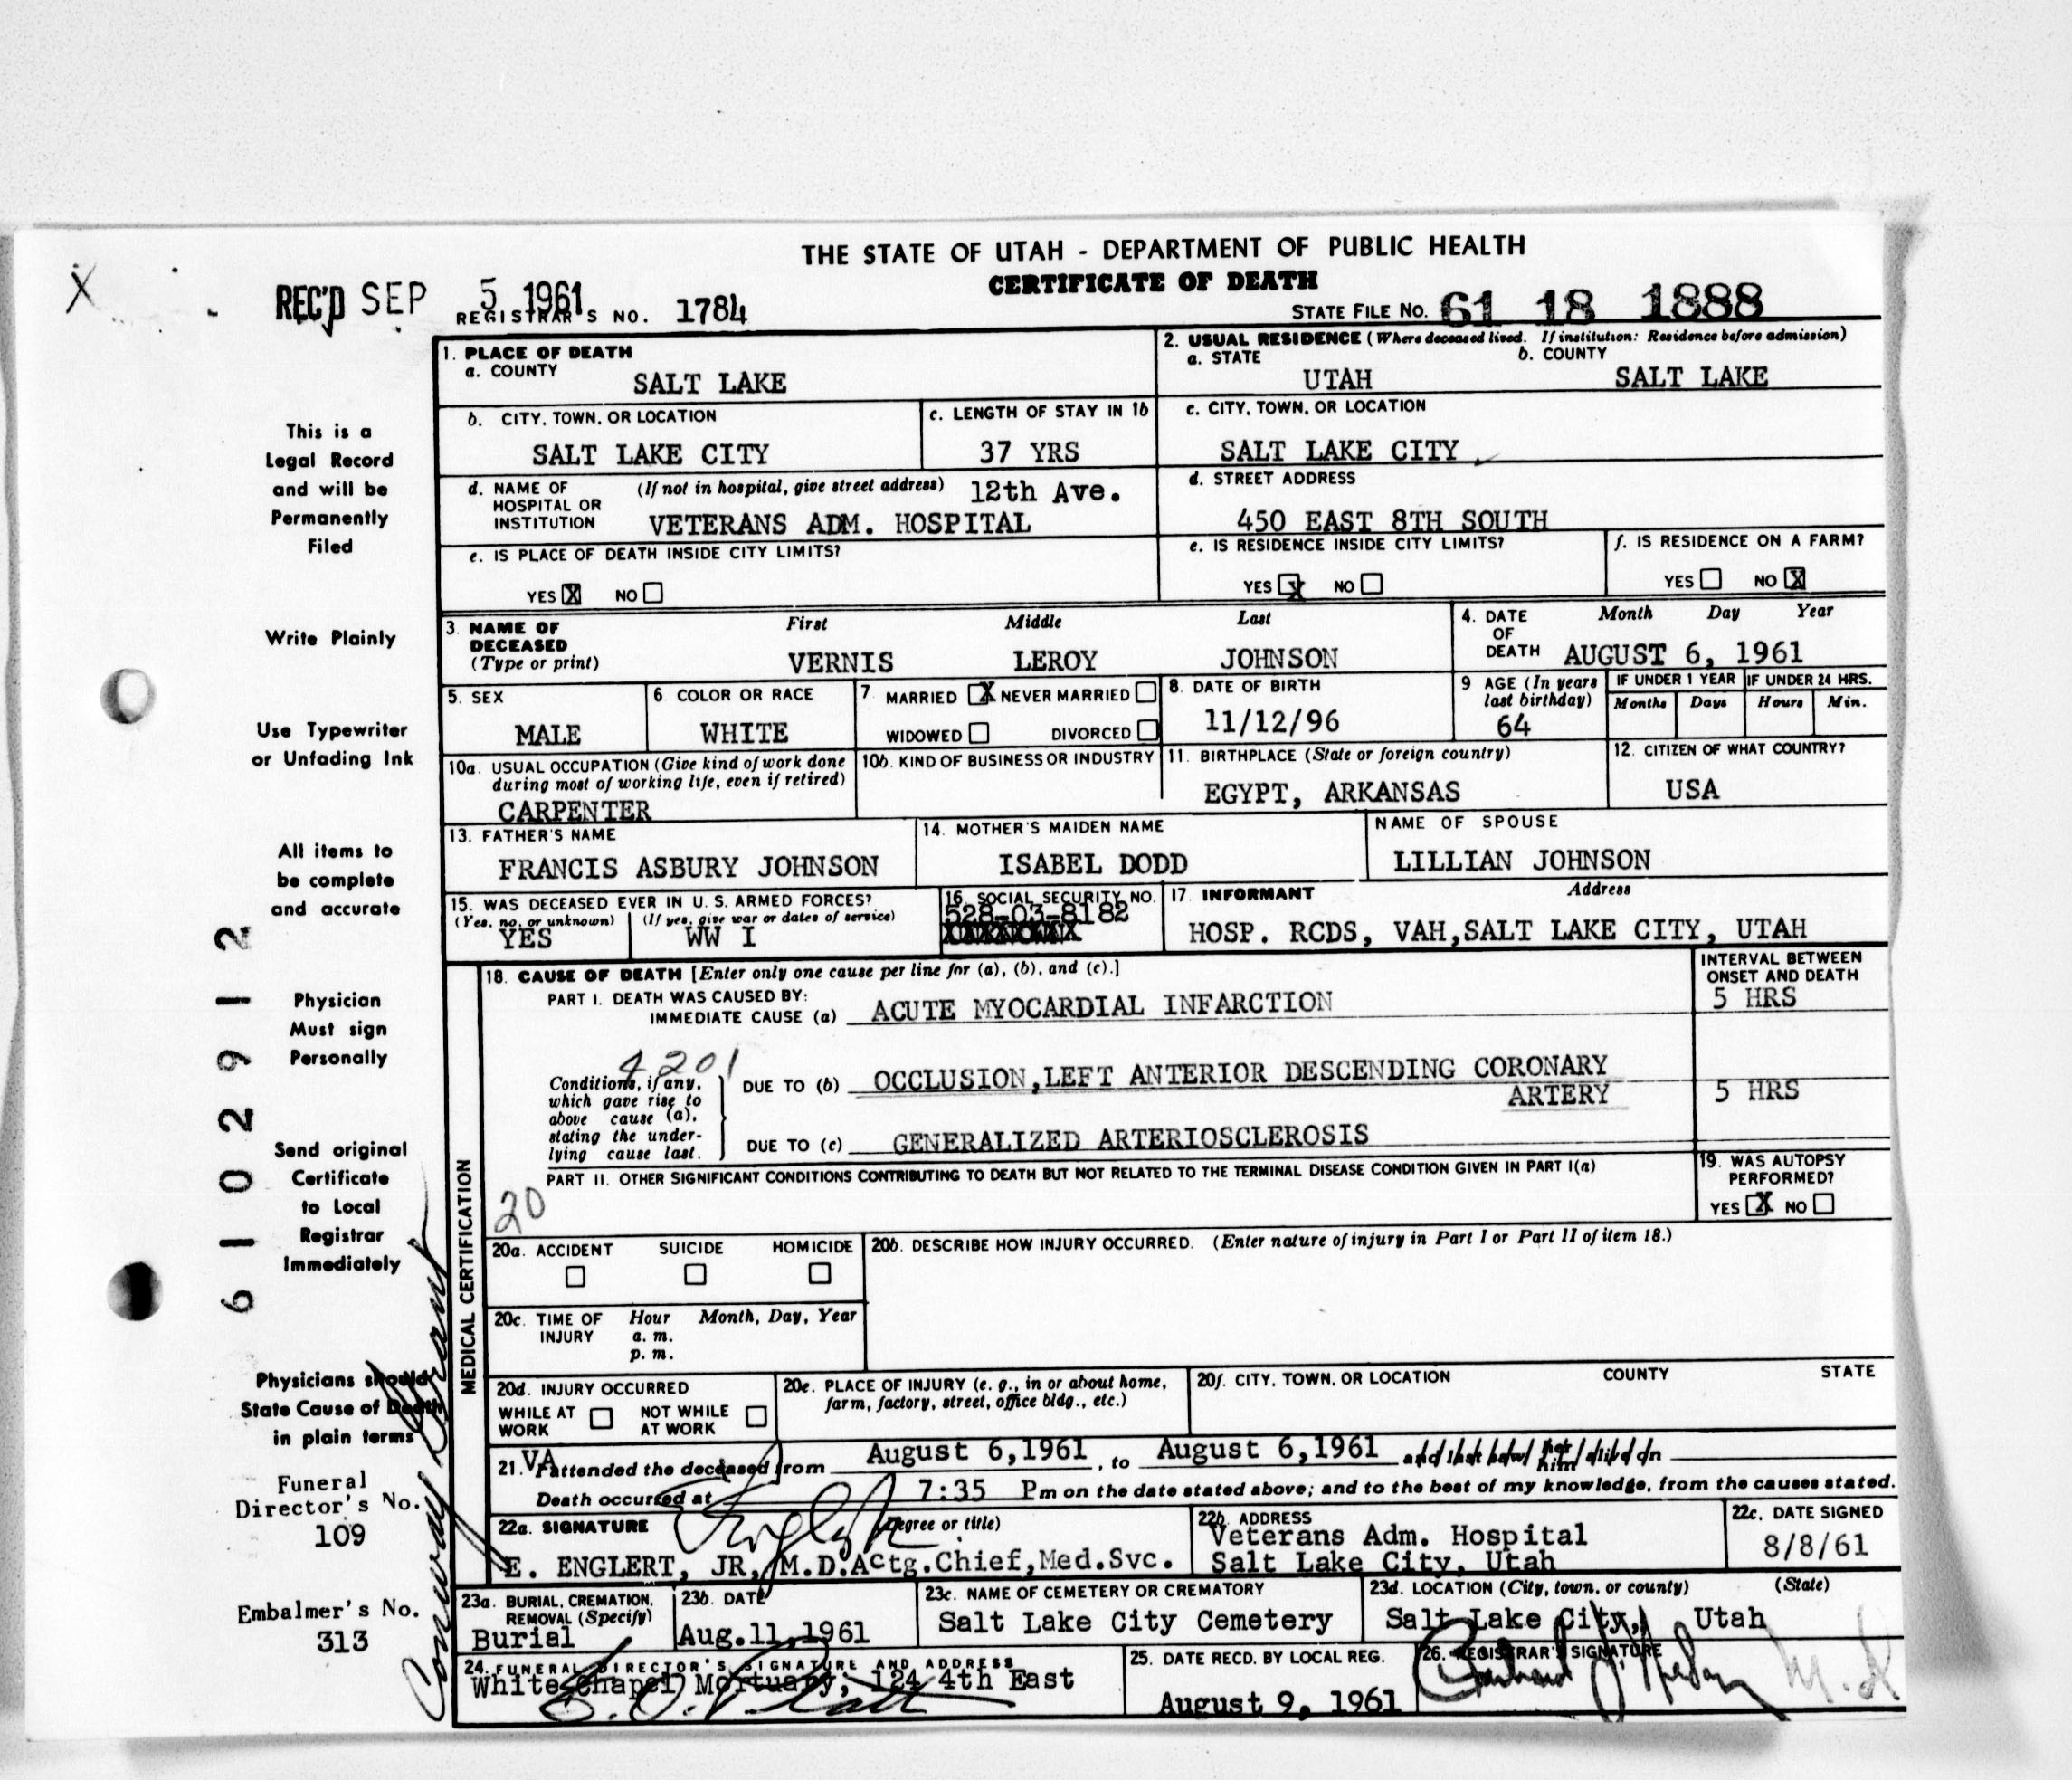 THE STATE OF UTAH - DEPARTMENT OF PUBLIC HEALTH
CERTIFICATE OF DEATH
X
REC'D SEP 5 1961
REGISTRAR'S NO. 1784
STATE FILE NO. 61 18 1888
This is a
Legal Record
and will be
Permanently
Filed
Write Plainly
Use Typewriter
or Unfading Ink
All items to
be complete
and accurate
Physician
Must sign
Personally
Send original
Certificate
to Local
Registrar
Immediately
Physicians should
State Cause of Death
in plain terms
Funeral
Director's No.
109
Embalmer's No.
313
6102912
Conway Grant
1. PLACE OF DEATH
a. COUNTY
SALT LAKE
2. USUAL RESIDENCE (Where deceased lived. If institution: Residence before admission)
a. STATE b. COUNTY
UTAH SALT LAKE
b. CITY, TOWN, OR LOCATION
SALT LAKE CITY
c. LENGTH OF STAY IN 1b
37 YRS
c. CITY, TOWN, OR LOCATION
SALT LAKE CITY
d. NAME OF HOSPITAL OR INSTITUTION (If not in hospital, give street address) 12th Ave.
VETERANS ADM. HOSPITAL
d. STREET ADDRESS
450 EAST 8TH SOUTH
e. IS PLACE OF DEATH INSIDE CITY LIMITS?
YES X NO
e. IS RESIDENCE INSIDE CITY LIMITS?
YES X NO
f. IS RESIDENCE ON A FARM?
YES NO X
3. NAME OF DECEASED (Type or print) First Middle Last
VERNIS LEROY JOHNSON
4. DATE OF DEATH Month Day Year
AUGUST 6, 1961
5. SEX
MALE
6 COLOR OR RACE
WHITE
7. MARRIED X NEVER MARRIED
WIDOWED DIVORCED
8. DATE OF BIRTH
11/12/96
9 AGE (In years last birthday)
64
IF UNDER 1 YEAR IF UNDER 24 HRS.
Months Days Hours Min.
10a. USUAL OCCUPATION (Give kind of work done during most of working life, even if retired)
CARPENTER
10b. KIND OF BUSINESS OR INDUSTRY
11. BIRTHPLACE (State or foreign country)
EGYPT, ARKANSAS
12. CITIZEN OF WHAT COUNTRY?
USA
13. FATHER'S NAME
FRANCIS ASBURY JOHNSON
14. MOTHER'S MAIDEN NAME
ISABEL DODD
NAME OF SPOUSE
LILLIAN JOHNSON
15. WAS DECEASED EVER IN U. S. ARMED FORCES?
(Yes, no, or unknown) (If yes, give war or dates of service)
YES WW I
16. SOCIAL SECURITY NO.
528-03-8182
17. INFORMANT Address
HOSP. RCDS, VAH,SALT LAKE CITY, UTAH
MEDICAL CERTIFICATION
18. CAUSE OF DEATH [Enter only one cause per line for (a), (b), and (c).]
INTERVAL BETWEEN ONSET AND DEATH
PART I. DEATH WAS CAUSED BY:
IMMEDIATE CAUSE (a) ACUTE MYOCARDIAL INFARCTION
5 HRS
4201
Conditions, if any, which gave rise to above cause (a), stating the underlying cause last.
DUE TO (b) OCCLUSION,LEFT ANTERIOR DESCENDING CORONARY
ARTERY
5 HRS
DUE TO (c) GENERALIZED ARTERIOSCLEROSIS
PART II. OTHER SIGNIFICANT CONDITIONS CONTRIBUTING TO DEATH BUT NOT RELATED TO THE TERMINAL DISEASE CONDITION GIVEN IN PART I(a)
20
19. WAS AUTOPSY PERFORMED?
YES X NO
20a. ACCIDENT SUICIDE HOMICIDE
20b. DESCRIBE HOW INJURY OCCURRED. (Enter nature of injury in Part I or Part II of item 18.)
20c. TIME OF INJURY Hour Month, Day, Year
a. m.
p. m.
20d. INJURY OCCURRED
WHILE AT WORK NOT WHILE AT WORK
20e. PLACE OF INJURY (e. g., in or about home, farm, factory, street, office bldg., etc.)
20f. CITY, TOWN, OR LOCATION COUNTY STATE
21. VA attended the deceased from August 6,1961, to August 6,1961 and last saw her/him alive on
Death occurred at 7:35 Pm on the date stated above; and to the best of my knowledge, from the causes stated.
22a. SIGNATURE (Degree or title)
E. ENGLERT, JR, M.D.Actg.Chief,Med.Svc.
22b. ADDRESS
Veterans Adm. Hospital
Salt Lake City, Utah
22c. DATE SIGNED
8/8/61
23a. BURIAL, CREMATION, REMOVAL (Specify)
Burial
23b. DATE
Aug.11,1961
23c. NAME OF CEMETERY OR CREMATORY
Salt Lake City Cemetery
23d. LOCATION (City, town, or county) (State)
Salt Lake City, Utah
24. FUNERAL DIRECTOR'S SIGNATURE AND ADDRESS
White Chapel Mortuary, 124 4th East
25. DATE RECD. BY LOCAL REG.
August 9, 1961
26. REGISTRAR'S SIGNATURE